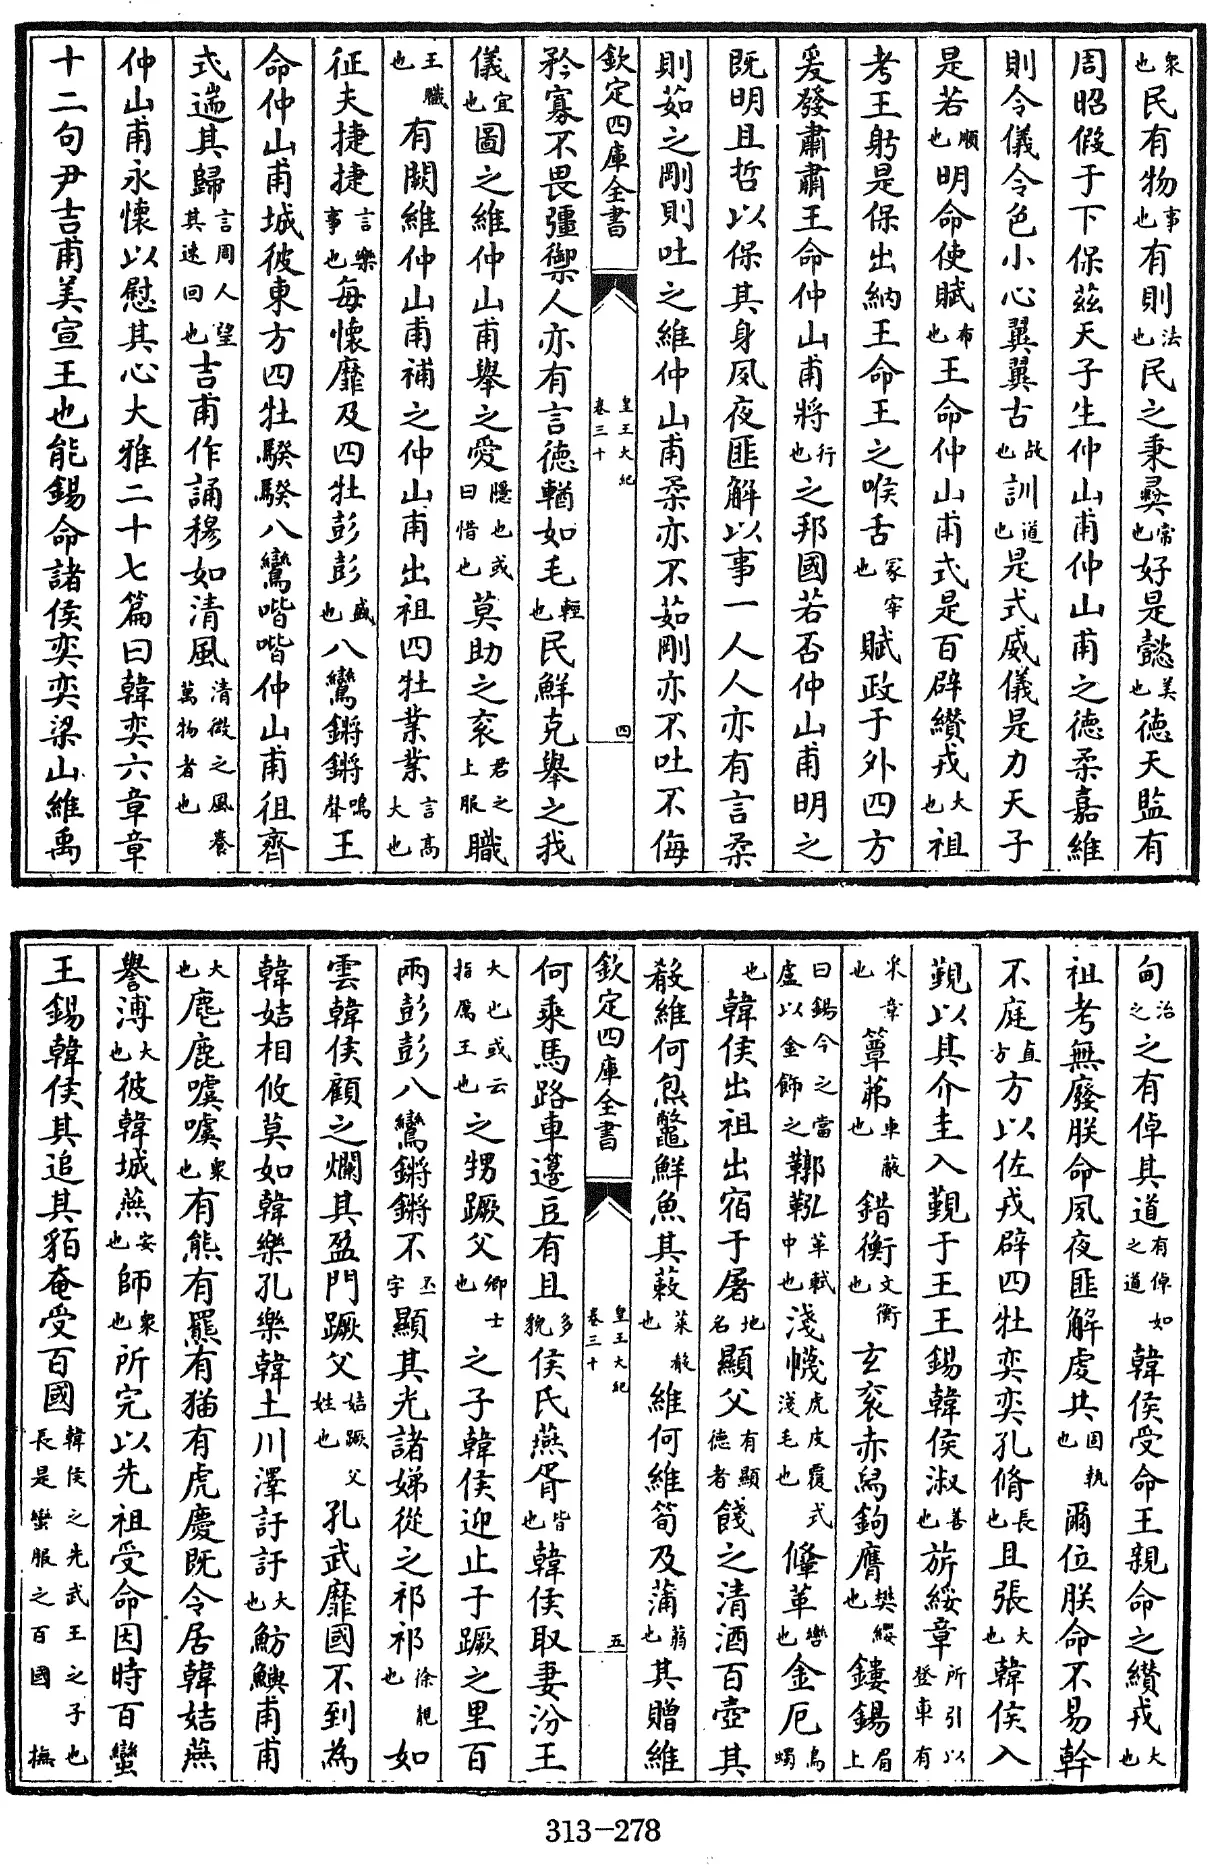 衆也民有物事也有則法也民之秉彝常也好是懿美也德天監有
周昭假于下保兹天子生仲山甫仲山甫之德柔嘉維
則令儀令色小心翼翼古故也訓道也是式威儀是力天子
是若順也明命使賦布也王命仲山甫式是百辟纘戎大也祖
考王躬是保出納王命王之喉舌冢宰也賦政于外四方
爰發肅肅王命仲山甫將行也之邦國若否仲山甫明之
既明且哲以保其身夙夜匪解以事一人人亦有言柔
則茹之剛則吐之維仲山甫柔亦不茹剛亦不吐不侮
欽定四庫全書 皇王大紀 卷三十 四
矜寡不畏彊禦人亦有言德輶如毛輕也民鮮克舉之我
儀宜也圖之維仲山甫舉之愛隱也或曰惜也莫助之衮君之上服職
王職也有闕維仲山甫補之仲山甫出祖四牡業業言高大也
征夫捷捷言樂事也每懷靡及四牡彭彭盛也八鸞鏘鏘鳴聲王
命仲山甫城彼東方四牡騤騤八鸞喈喈仲山甫徂齊
式遄其歸言周人望其速回也吉甫作誦穆如清風清微之風養萬物者也
仲山甫永懷以慰其心大雅二十七篇曰韓奕六章章
十二句尹吉甫美宣王也能錫命諸侯奕奕梁山維禹
甸治之之有倬其道有倬如之道韓侯受命王親命之纘戎大也
祖考無廢朕命夙夜匪解虔共固執也爾位朕命不易幹
不庭直方方以佐戎辟四牡奕奕孔脩長也且張大也韓侯入
覲以其介圭入覲于王王錫韓侯淑善也旂綏章所引以登車有
采章也簟茀車蔽也錯衡文衡也玄衮赤舄鉤膺樊纓也鏤鍚眉上
曰鍚今之當盧以金飾之鞹鞃革軾中也淺幭虎皮覆式淺毛也鞗革轡也金厄烏蠋
也韓侯出祖出宿于屠地名顯父有顯德者餞之清酒百壺其
殽維何炰鼈鮮魚其蔌菜殽也維何維筍及蒲蒻也其贈維
欽定四庫全書 皇王大紀 卷三十 五
何乘馬路車籩豆有且多貌侯氏燕胥皆也韓侯取妻汾王
大也或云指厲王也之甥蹶父卿士也之子韓侯迎止于蹶之里百
兩彭彭八鸞鏘鏘不丕字顯其光諸娣從之祁祁徐靚也如
雲韓侯顧之爛其盈門蹶父姞蹶父姓也孔武靡國不到為
韓姞相攸莫如韓樂孔樂韓土川澤訏訏大也魴鱮甫甫
大也麀鹿噳噳衆也有熊有羆有猫有虎慶既令居韓姞燕
譽溥大也彼韓城燕安也師衆也所完以先祖受命因時百蠻
王錫韓侯其追其貊奄受百國韓侯之先武王之子也長是蠻服之百國撫
313-278